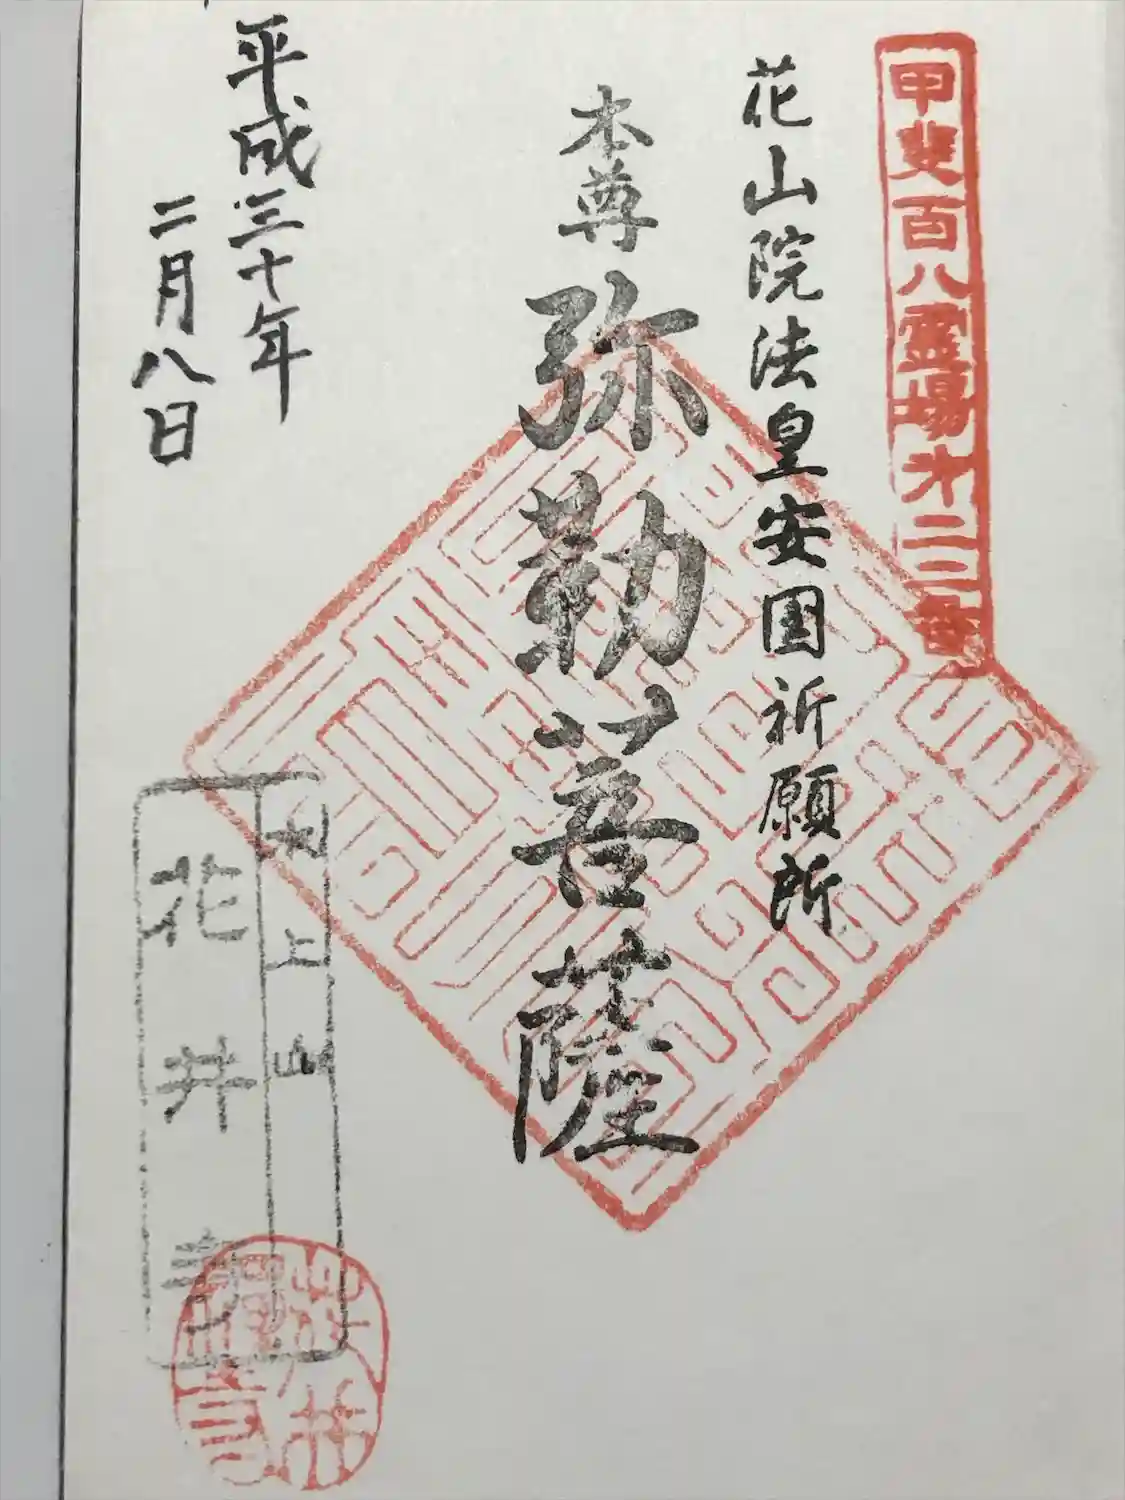 甲斐百八霊場才二二番
花山院法皇安国祈願所
本尊 弥勒菩薩
平成三十年
二月八日
大上山
花井寺